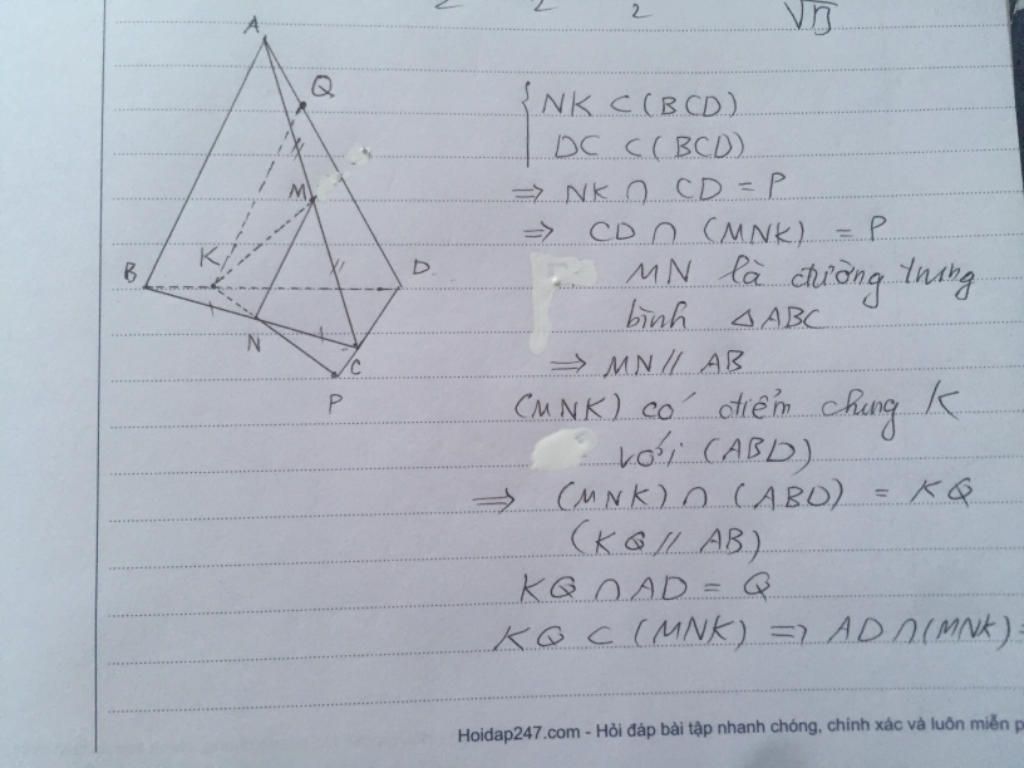 2 2 2 √13
A
Q
M
K
B
D
N
C
P
NK ⊂ (BCD)
DC ⊂ (BCD)
=> NK ∩ CD = P
=> CD ∩ (MNK) = P
MN là đường trung
bình △ABC
=> MN // AB
(MNK) có điểm chung K
với (ABD)
=> (MNK) ∩ (ABD) = KQ
(KQ // AB)
KQ ∩ AD = Q
KQ ⊂ (MNK) => AD ∩ (MNK) =
Hoidap247.com - Hỏi đáp bài tập nhanh chóng, chính xác và luôn miễn p